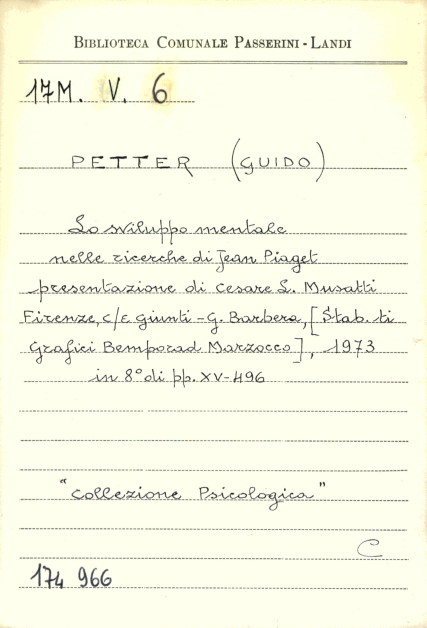 BIBLIOTECA COMUNALE PASSERINI - LANDI
17M. V. 6
PETTER (GUIDO)
Lo sviluppo mentale
nelle ricerche di Jean Piaget
presentazione di Cesare L. Musatti
Firenze, C/E Giunti - G. Barbera, [Stab. ti
Grafici Bemporad Marzocco], 1973
in 8° di pp. XV-496
"Collezione Psicologica"
C
174 966